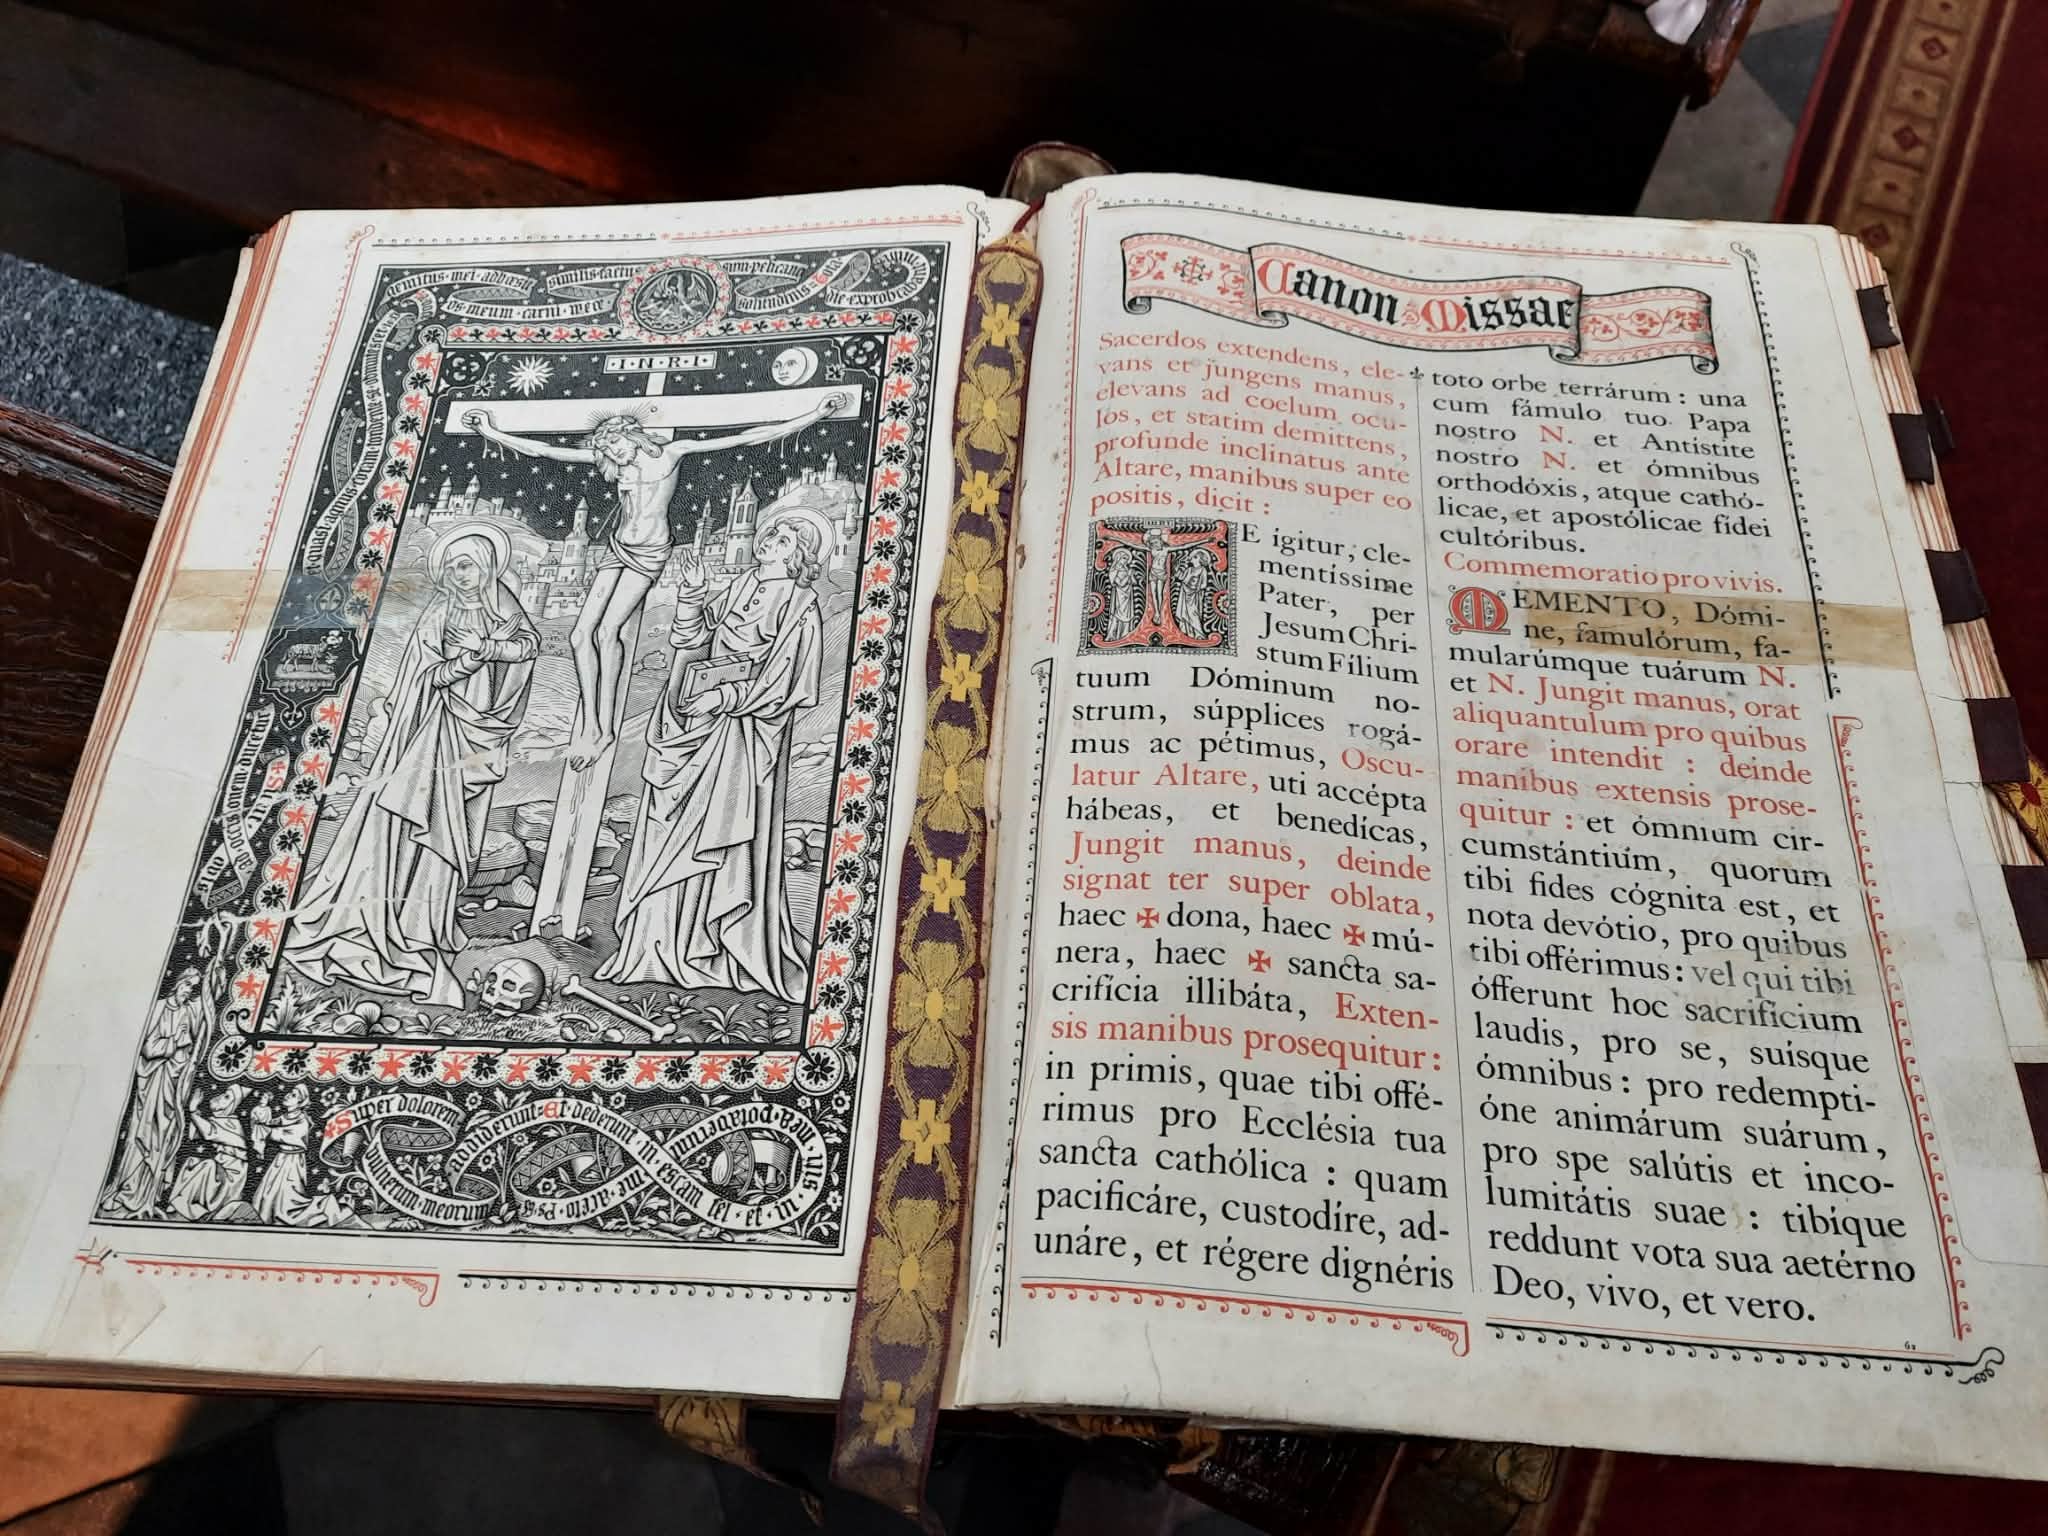 gemitus mei adhaesit
os meum carni meae
similis factus
non pelicano
solitudinis
Tota
die exprobrabant
quasi agnus coram tondente se
sicut ovis
ad occisionem ducetur
I N R I
Super dolorem
vulnerum meorum
addiderunt
Et dederunt in escam
me aceto
potaverunt
Canon Missae
Sacerdos extendens, ele-
vans et jungens manus,
elevans ad coelum ocu-
los, et statim demittens,
profunde inclinatus ante
Altare, manibus super eo
positis, dicit :
TE igitur, cle-
mentíssime
Pater, per
Jesum Chri-
stum Fílium
tuum Dóminum no-
strum, súpplices rogá-
mus ac pétimus, Oscu-
latur Altare, uti accépta
hábeas, et benedícas,
Jungit manus, deinde
signat ter super oblata,
haec ✠ dona, haec ✠ mú-
nera, haec ✠ sancta sa-
crifícia illibáta, Exten-
sis manibus prosequitur :
in primis, quae tibi offé-
rimus pro Ecclésia tua
sancta cathólica : quam
pacificáre, custodíre, ad-
unáre, et régere dignéris
toto orbe terrárum : una
cum fámulo tuo Papa
nostro N. et Antístite
nostro N. et ómnibus
orthodóxis, atque cathó-
licae, et apostólicae fídei
cultóribus.
Commemoratio pro vivis.
MEMENTO, Dómi-
ne, famulórum, fa-
mularúmque tuárum N.
et N. Jungit manus, orat
aliquantulum pro quibus
orare intendit : deinde
manibus extensis prose-
quitur : et ómnium cir-
cumstántium, quorum
tibi fides cógnita est, et
nota devótio, pro quibus
tibi offérimus : vel qui tibi
ófferunt hoc sacrifícium
laudis, pro se, suísque
ómnibus : pro redempti-
óne animárum suárum,
pro spe salútis et inco-
lumitátis suae : tibíque
reddunt vota sua aetérno
Deo, vivo, et vero.